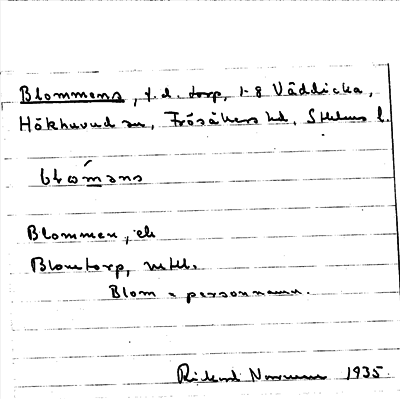 Blommens, f.d. torp, 1-8 Väddicka,
Hökhuvud sn, Frösåkers hd, Sthlms l.
blom̄ans
Blommen, ek
Blomtorp, mtl.
Blom = personnamn.
Rikard 1935